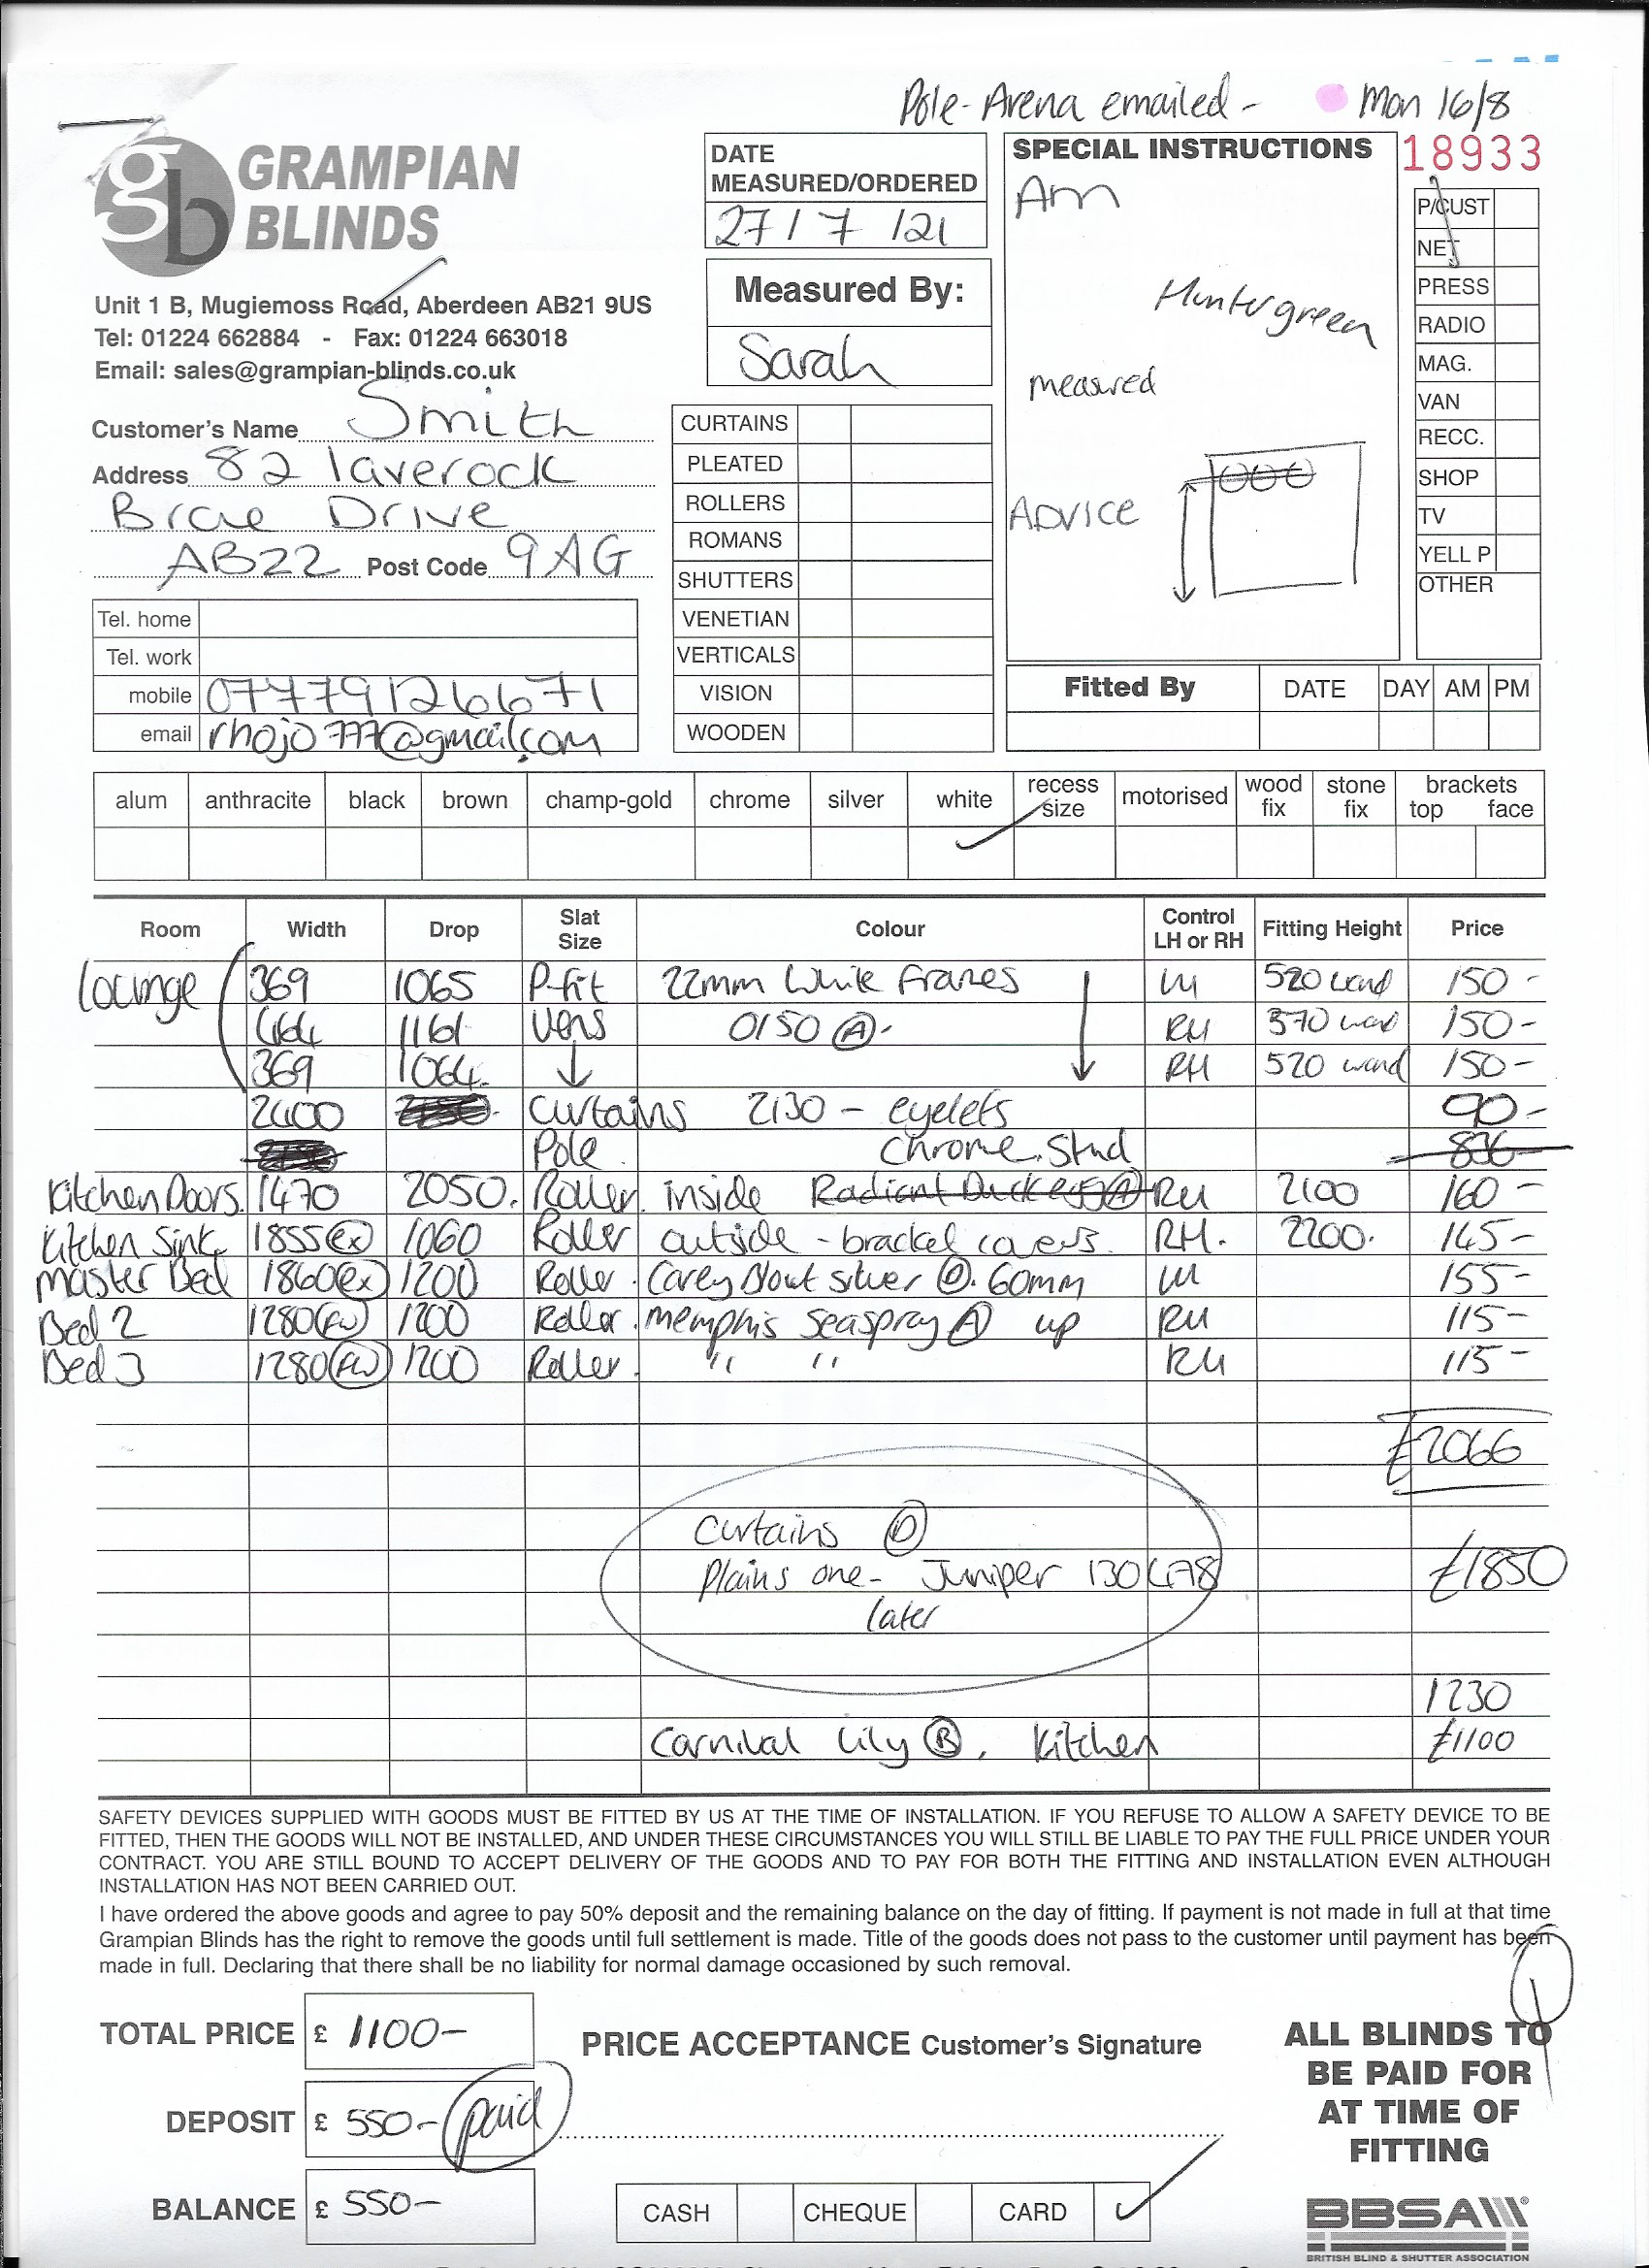 Pole - Arena emailed - Mon 16/8
GRAMPIAN
BLINDS
Unit 1 B, Mugiemoss Road, Aberdeen AB21 9US
Tel: 01224 662884 - Fax: 01224 663018
Email: sales@grampian-blinds.co.uk
Customer's Name Smith
Address 82 laverock
Brae Drive
AB22 Post Code 9AG
Tel. home
Tel. work
mobile 07779126671
email rhojo777@gmail.com
DATE
MEASURED/ORDERED
27/7/21
Measured By:
Sarah
CURTAINS
PLEATED
ROLLERS
ROMANS
SHUTTERS
VENETIAN
VERTICALS
VISION
WOODEN
SPECIAL INSTRUCTIONS
Am
Huntergreen
measured
ADVICE
18933
P/CUST
NET
PRESS
RADIO
MAG.
VAN
RECC.
SHOP
TV
YELL P
OTHER
Fitted By DATE DAY AM PM
alum anthracite black brown champ-gold chrome silver white recess size motorised wood fix stone fix brackets top face
Room Width Drop Slat Size Colour Control LH or RH Fitting Height Price
Lounge 369 1065 P-fit 22mm White Frames LH 520 wand 150-
464 1161 Vens 0150 (A)- RH 570 wand 150-
369 1064. RH 520 wand 150-
2400 Curtains 2130 - eyelets 90-
Pole Chrome Stud 836
Kitchen Doors 1470 2050. Roller inside RH 2100 160-
Kitchen Sink 1855 (ex) 1060 Roller outside - bracket covers. RH. 2200. 145-
Master Bed 1860 (ex) 1200 Roller. Silver 60mm LH 155-
Bed 2 1280 (FW) 1200 Roller. Memphis Seaspray (A) up RH 115-
Bed 3 1280 (FW) 1200 Roller. " " RH 115-
£2066
Curtains (D)
Plains one - Juniper £1850
later
1230
Carnival Lily (B). Kitchen £1100
SAFETY DEVICES SUPPLIED WITH GOODS MUST BE FITTED BY US AT THE TIME OF INSTALLATION. IF YOU REFUSE TO ALLOW A SAFETY DEVICE TO BE
FITTED, THEN THE GOODS WILL NOT BE INSTALLED, AND UNDER THESE CIRCUMSTANCES YOU WILL STILL BE LIABLE TO PAY THE FULL PRICE UNDER YOUR
CONTRACT. YOU ARE STILL BOUND TO ACCEPT DELIVERY OF THE GOODS AND TO PAY FOR BOTH THE FITTING AND INSTALLATION EVEN ALTHOUGH
INSTALLATION HAS NOT BEEN CARRIED OUT.
I have ordered the above goods and agree to pay 50% deposit and the remaining balance on the day of fitting. If payment is not made in full at that time
Grampian Blinds has the right to remove the goods until full settlement is made. Title of the goods does not pass to the customer until payment has been
made in full. Declaring that there shall be no liability for normal damage occasioned by such removal.
TOTAL PRICE £ 1100-
DEPOSIT £ 550- paid
BALANCE £ 550-
PRICE ACCEPTANCE Customer's Signature
CASH CHEQUE CARD
ALL BLINDS TO
BE PAID FOR
AT TIME OF
FITTING
BBSA
BRITISH BLIND & SHUTTER ASSOCIATION